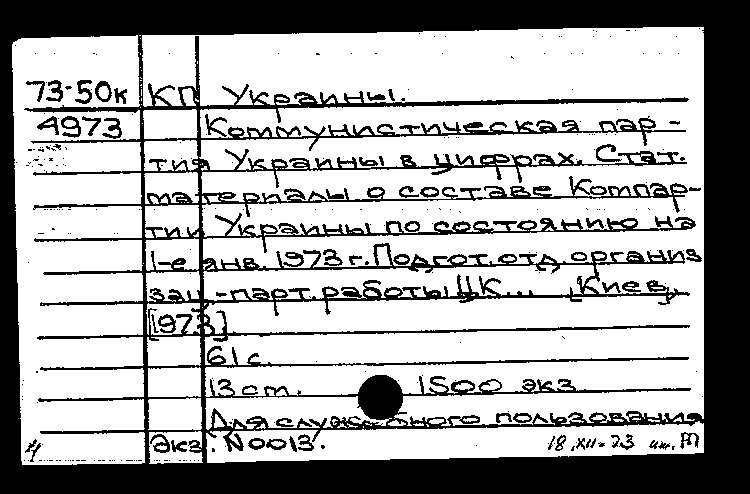 73-50к КП Украины.
4973 Коммунистическая пар-
тия Украины в цифрах. Стат.
материалы о составе Компар-
тии Украины по состоянию на
1-е янв. 1973 г. Подгот. отд. организ
зац.-парт. работы ЦК... [Киев,
[973]
61 с.
13 см. 1500 экз
Для служебного пользования
Экз. N0013.
4 18.XII-73